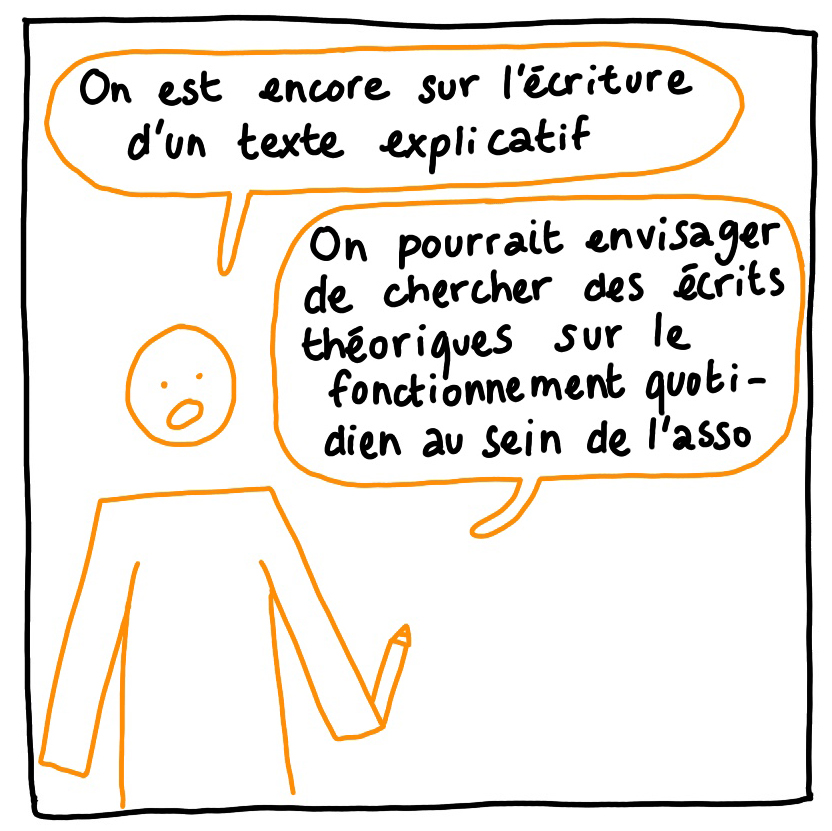 On est encore sur l'écriture
d'un texte explicatif
On pourrait envisager
de chercher des écrits
théoriques sur le
fonctionnement quoti-
dien au sein de l'asso